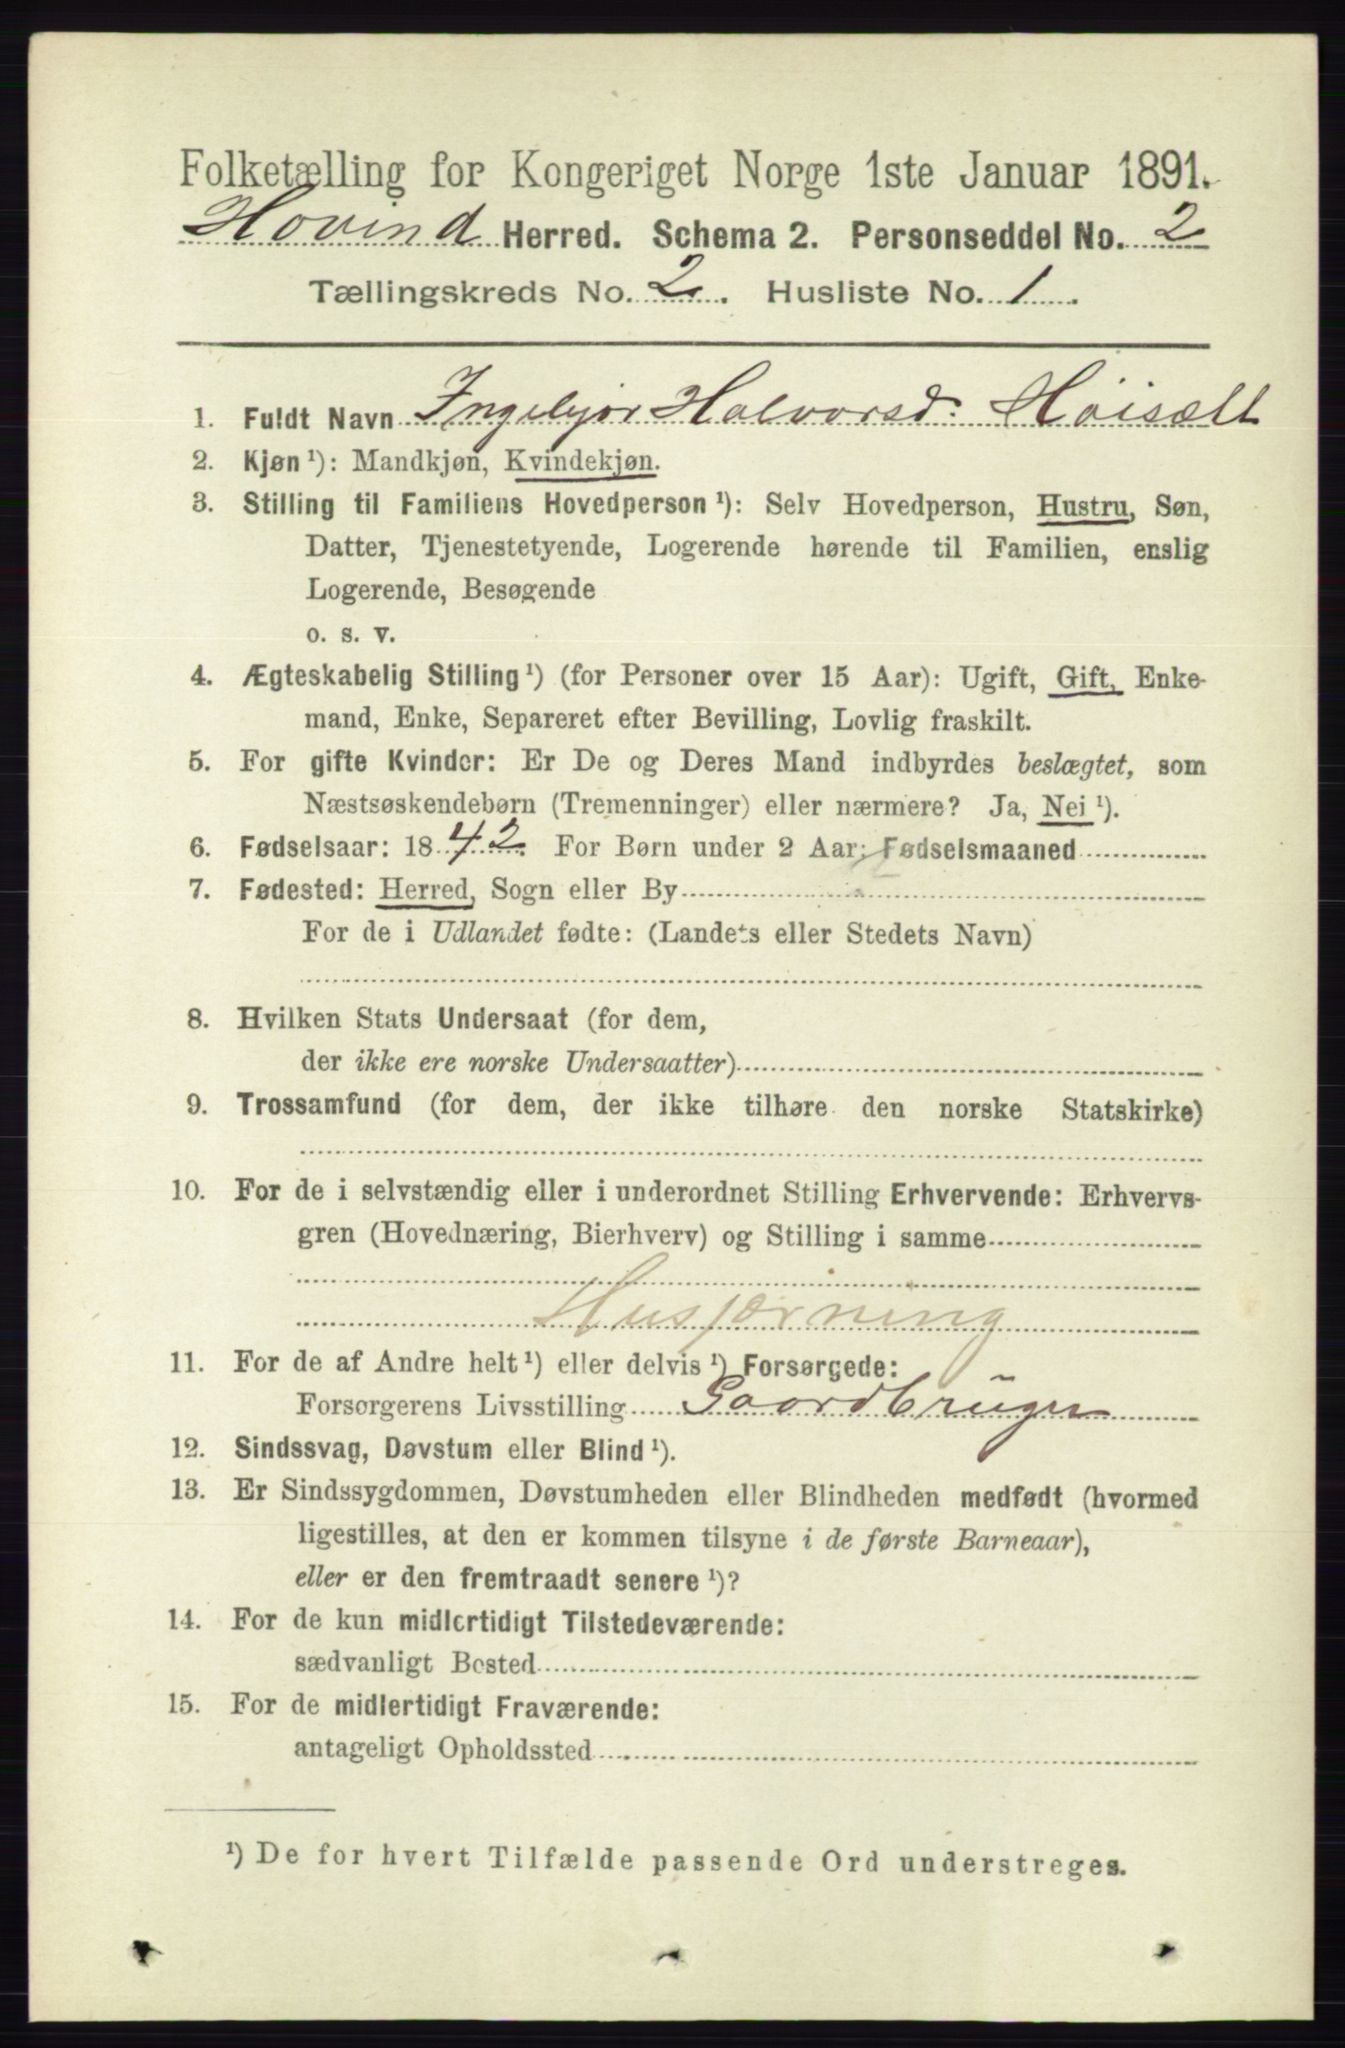 Folketælling for Kongeriget Norge 1ste Januar 1891.
Hovind Herred. Schema 2. Personseddel No. 2
Tællingskreds No. 2. Husliste No. 1.
1. Fuldt Navn Ingebjør Halvorsd. Höisæth
2. Kjøn ¹): Mandkjøn, Kvindekjøn.
3. Stilling til Familiens Hovedperson ¹): Selv Hovedperson, Hustru, Søn,
Datter, Tjenestetyende, Logerende hørende til Familien, enslig
Logerende, Besøgende
o. s. v.
4. Ægteskabelig Stilling ¹) (for Personer over 15 Aar): Ugift, Gift, Enke-
mand, Enke, Separeret efter Bevilling, Lovlig fraskilt.
5. For gifte Kvinder: Er De og Deres Mand indbyrdes beslægtet, som
Næstsøskendebørn (Tremenninger) eller nærmere? Ja, Nei ¹).
6. Fødselsaar: 1842. For Børn under 2 Aar: Fødselsmaaned
7. Fødested: Herred, Sogn eller By
For de i Udlandet fødte: (Landets eller Stedets Navn)
8. Hvilken Stats Undersaat (for dem,
der ikke ere norske Undersaatter)
9. Trossamfund (for dem, der ikke tilhøre den norske Statskirke)
10. For de i selvstændig eller i underordnet Stilling Erhvervende: Erhvervs-
gren (Hovednæring, Bierhverv) og Stilling i samme
Husgjerning
11. For de af Andre helt ¹) eller delvis ¹) Forsørgede:
Forsørgerens Livsstilling Gaardbrüger
12. Sindssvag, Døvstum eller Blind ¹).
13. Er Sindssygdommen, Døvstumheden eller Blindheden medfødt (hvormed
ligestilles, at den er kommen tilsyne i de første Barneaar),
eller er den fremtraadt senere ¹)?
14. For de kun midlertidigt Tilstedeværende:
sædvanligt Bosted
15. For de midlertidigt Fraværende:
antageligt Opholdssted
¹) De for hvert Tilfælde passende Ord understreges.